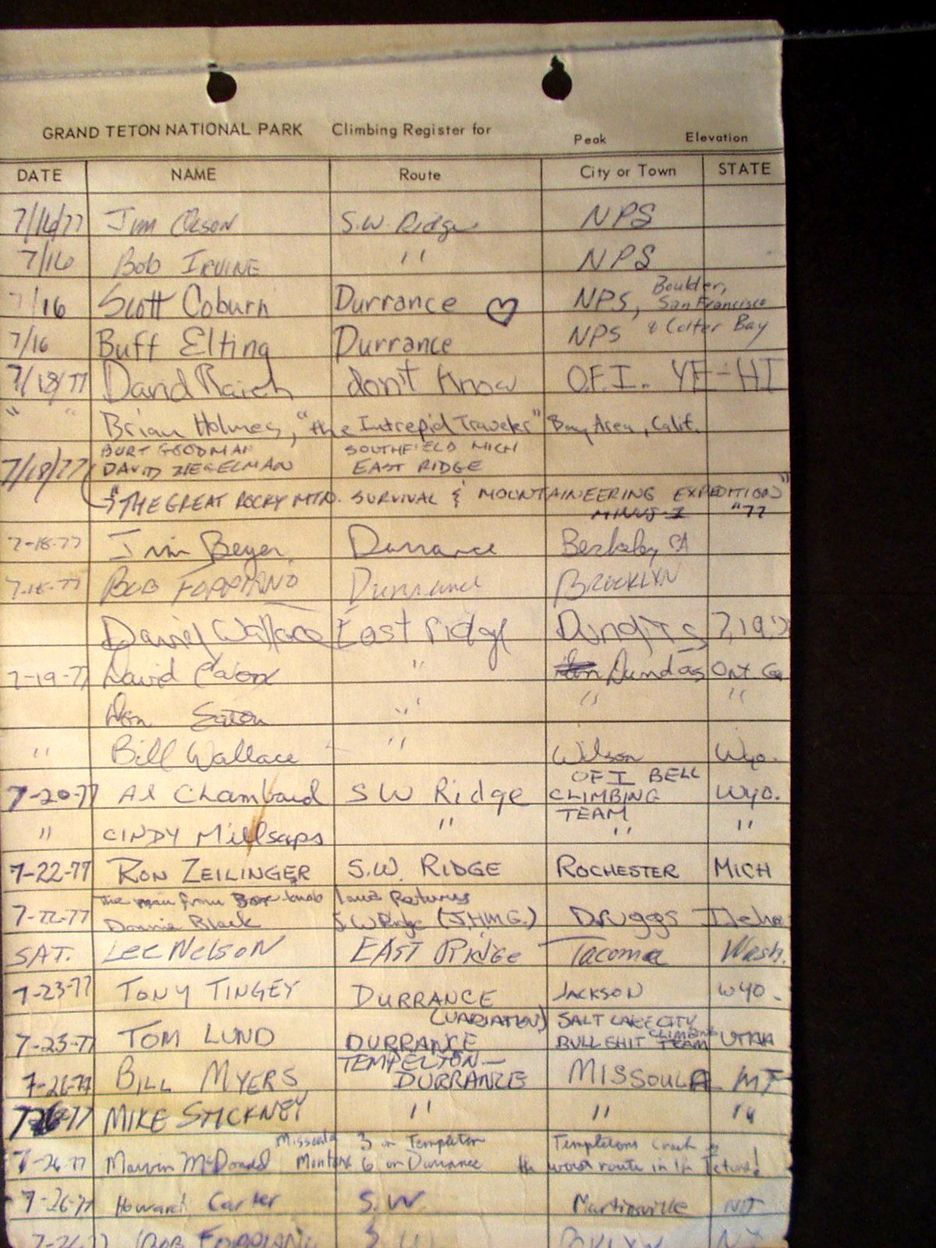 GRAND TETON NATIONAL PARK Climbing Register for Peak Elevation
DATE NAME Route City or Town STATE
7/16/77 Jim Olson S.W. Ridge NPS
7/16 Bob Irvine " NPS
7/16 Scott Coburn Durrance ♡ NPS, Boulder, San Francisco
7/16 Buff Elting Durrance NPS & Colter Bay
7/18/77 David Raich don't know O.F.I. YE-HI
" " Brian Holmes, "the Intrepid Traveler" Bay Area, Calif.
BURT GOODMAN SOUTHFIELD MICH
7/18/77 DAVID ZIEGELMAN EAST RIDGE
"THE GREAT ROCKY MTN. SURVIVAL & MOUNTAINEERING EXPEDITION"
MINUS I "77
7-18-77 Beyer Durrance Berkeley, CA
7-18-77 BOB Durrance BROOKLYN
David Wallace East ridge 7,19,
7-19-77 David " Dundas Ont
" " "
" Bill Wallace " Wilson Wyo.
7-20-77 Al Chambard SW Ridge OFI BELL CLIMBING TEAM Wyo.
" CINDY Millsaps " " "
7-22-77 RON ZEILINGER S.W. RIDGE ROCHESTER MICH
The man from knob
7-22-77 Donnie Black SW Ridge (J.H.M.G.) Druggs
SAT. Lee Nelson EAST RIDGE Tacoma Wash.
7-23-77 TONY TINGEY DURRANCE JACKSON WYO.
(VARIATION) SALT LAKE CITY
7-23-77 TOM LUND DURRANCE BULLSHIT CLIMBING TEAM UTAH
7-26-77 BILL MYERS TEMPELTON-DURRANCE MISSOULA MT
7-26-77 MIKE STICKNEY " " "
Missoula 3 on Templeton Templetons Crack is
7-26-77 Marvin McDonald Montana 6 on Durrance the worst route in the Tetons!
7-26-77 Howard Carter S.W. Martinsville
7-26-77 BOB S.W. BKLYN NY